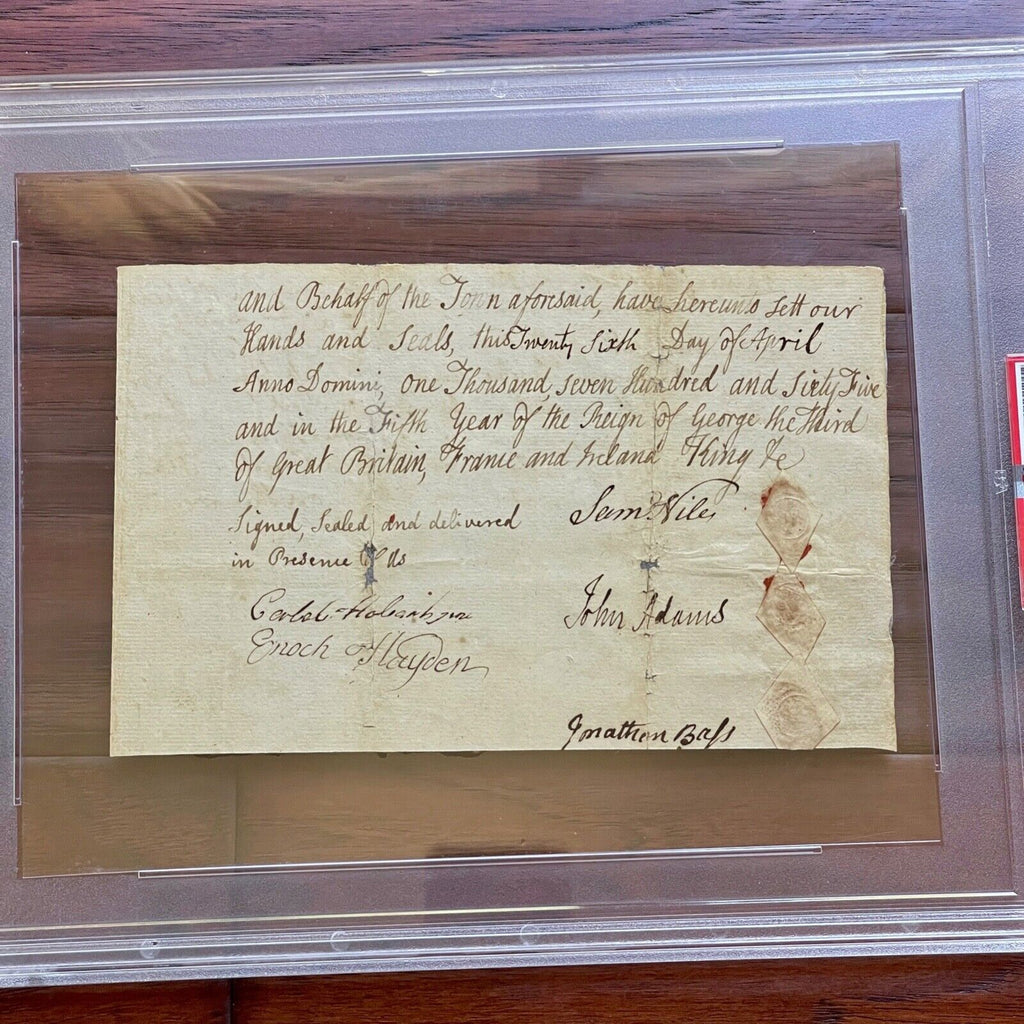 and Behalf of the Town aforesaid, have hereunto sett our
Hands and Seals, this Twenty Sixth Day of April
Anno Domini, One Thousand, seven Hundred and Sixty Five
and in the Fifth Year of the Reign of George the Third
of Great Britain, France and Ireland King &c
Signed, Sealed and delivered
in Presence of Us
Saml. Niles
John Adams
Caleb Hobart jun
Enoch Hayden
Jonathan Bass